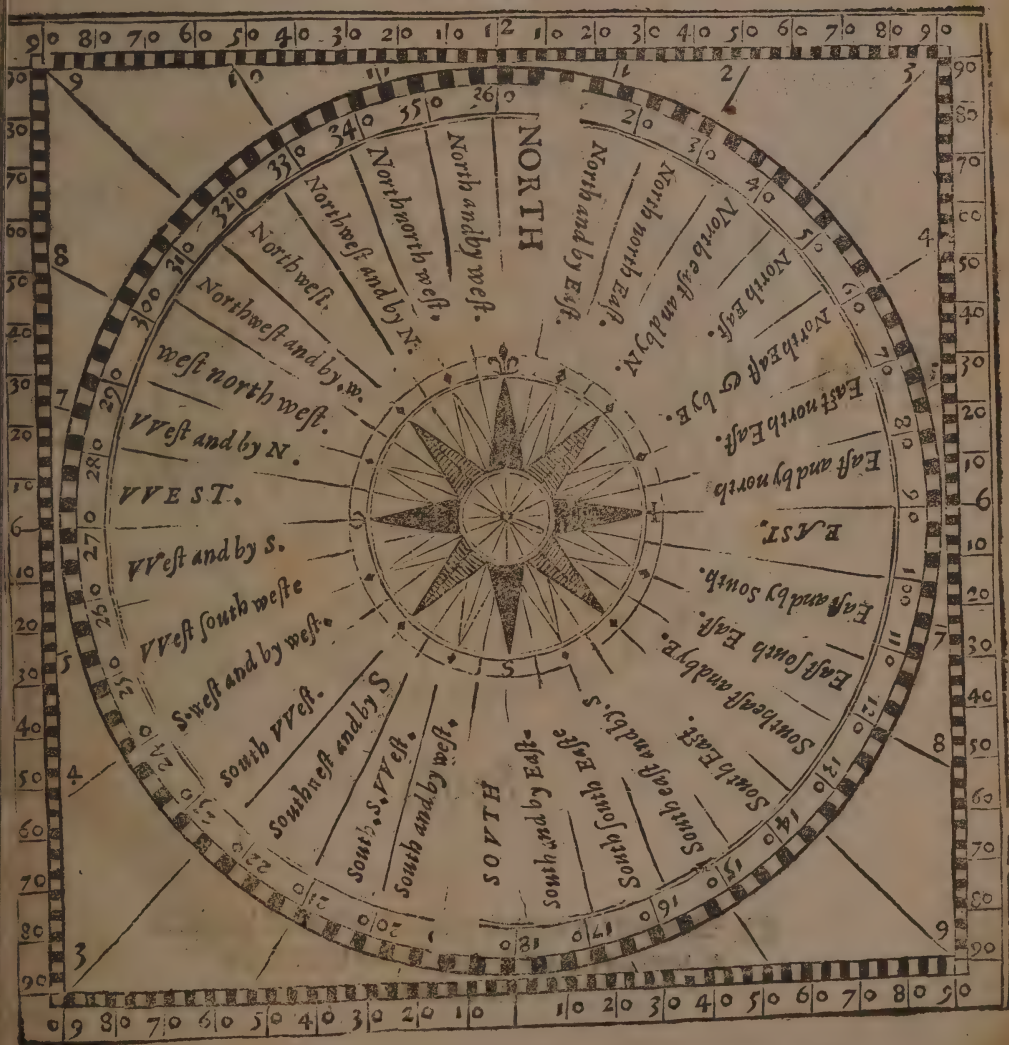 90 80 70 60 50 40 30 20 10 12 10 20 30 40 50 60 70 80 90
9 10 11 11 2 3
90 80 70 60 50 40 30 20 10 6 10 20 30 40 50 60 70 80 90
8 7 5 4 3
90 80 70 60 50 40 30 20 10 6 10 20 30 40 50 60 70 80 90
4 7 8 9
20 30 40 50 60 70 80 90 100 110 120 130 140 150 160 170 180
20 21 22 23 24 25 260 270 280 290 300 310 320 330 340 350 260
NORTH
North and by Eaſt.
North north Eaſt.
North eaſt and by N
North Eaſt.
North Eaſt & by E.
Eaſt north Eaſt.
Eaſt and by north
EAST.
Eaſt and by South.
Eaſt ſouth Eaſt.
Southeaſt and by E.
South Eaſt.
South eaſt and by. S
South ſouth Eaſte
South and by Eaſt
SOVTH
South and by weſt.
South. S. VVeſt.
Southneſt and by S
South VVeſt.
S. weſt and by weſt.
VVeſt ſouth weſte
VVeſt and by S.
VVEST.
VVeſt and by N.
weſt north weſt.
Northweſt and by. w.
North weſt.
Northweſt and by N:
Northnorth weſt.
North and by weſt.
S
90 80 70 60 50 40 30 20 10 10 20 30 40 50 60 70 80 90